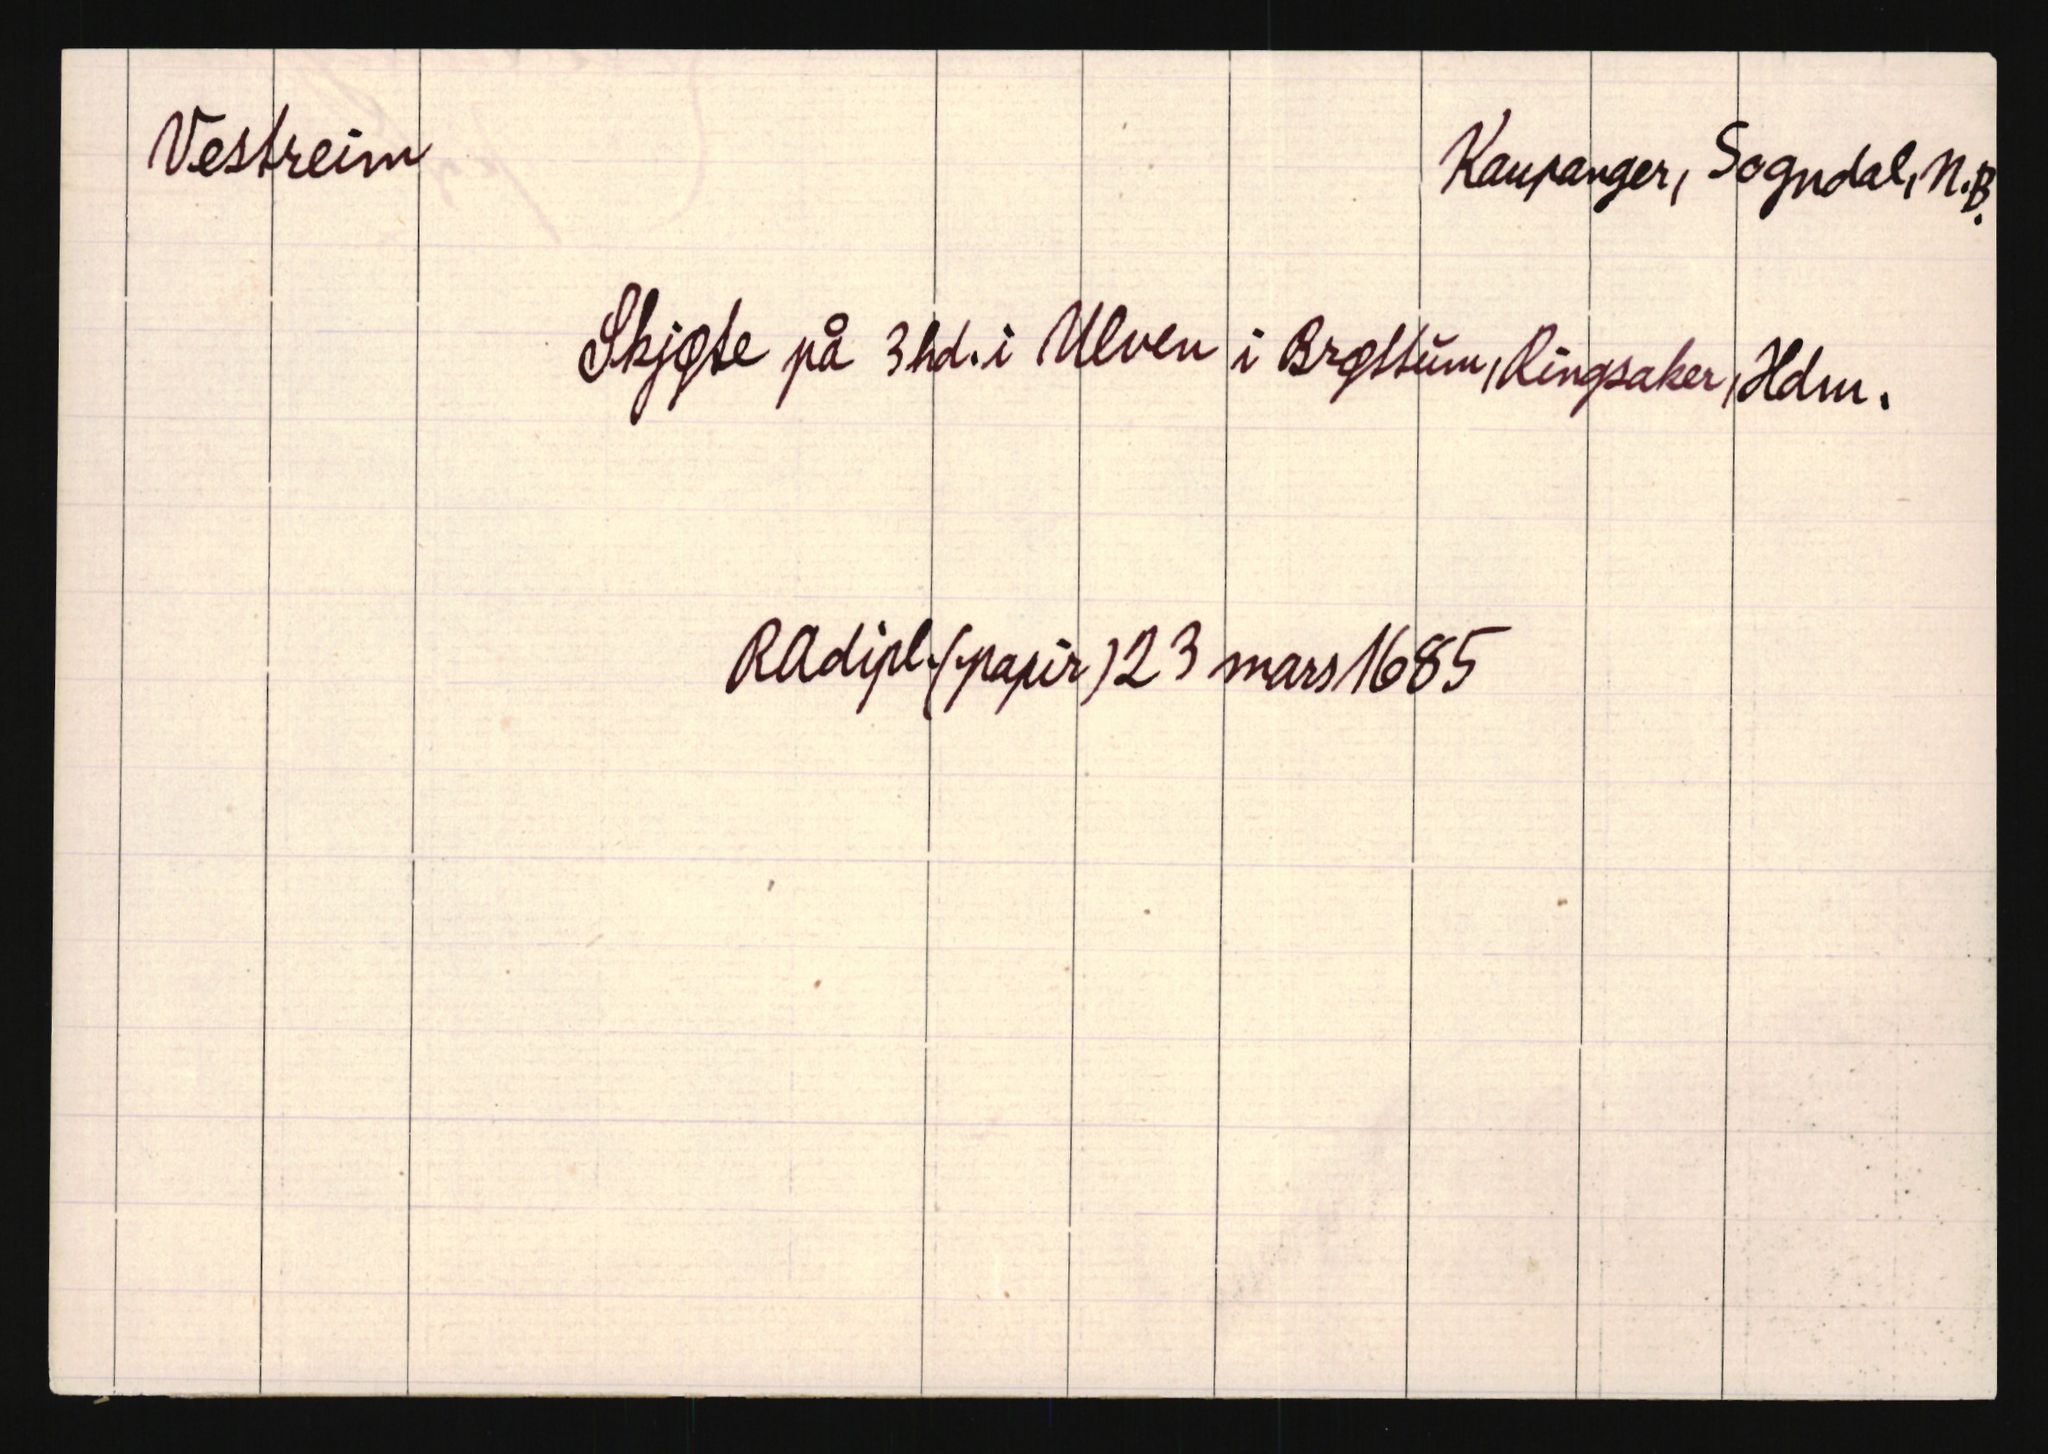 Vestreim
Kaupanger, Sogndal, N.B.
Skjøte på 3 hd. i Ulven i Brøttum, Ringsaker, Hdm.
RAdipl. (papir) 23 mars 1685